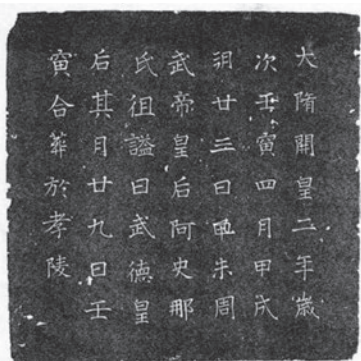 大隋開皇二年歲
次壬寅四月甲戌
朔廿三日甲未周
武帝皇后阿史那
氏徂謚曰武德皇
后其月廿九日壬
寅合葬於孝陵